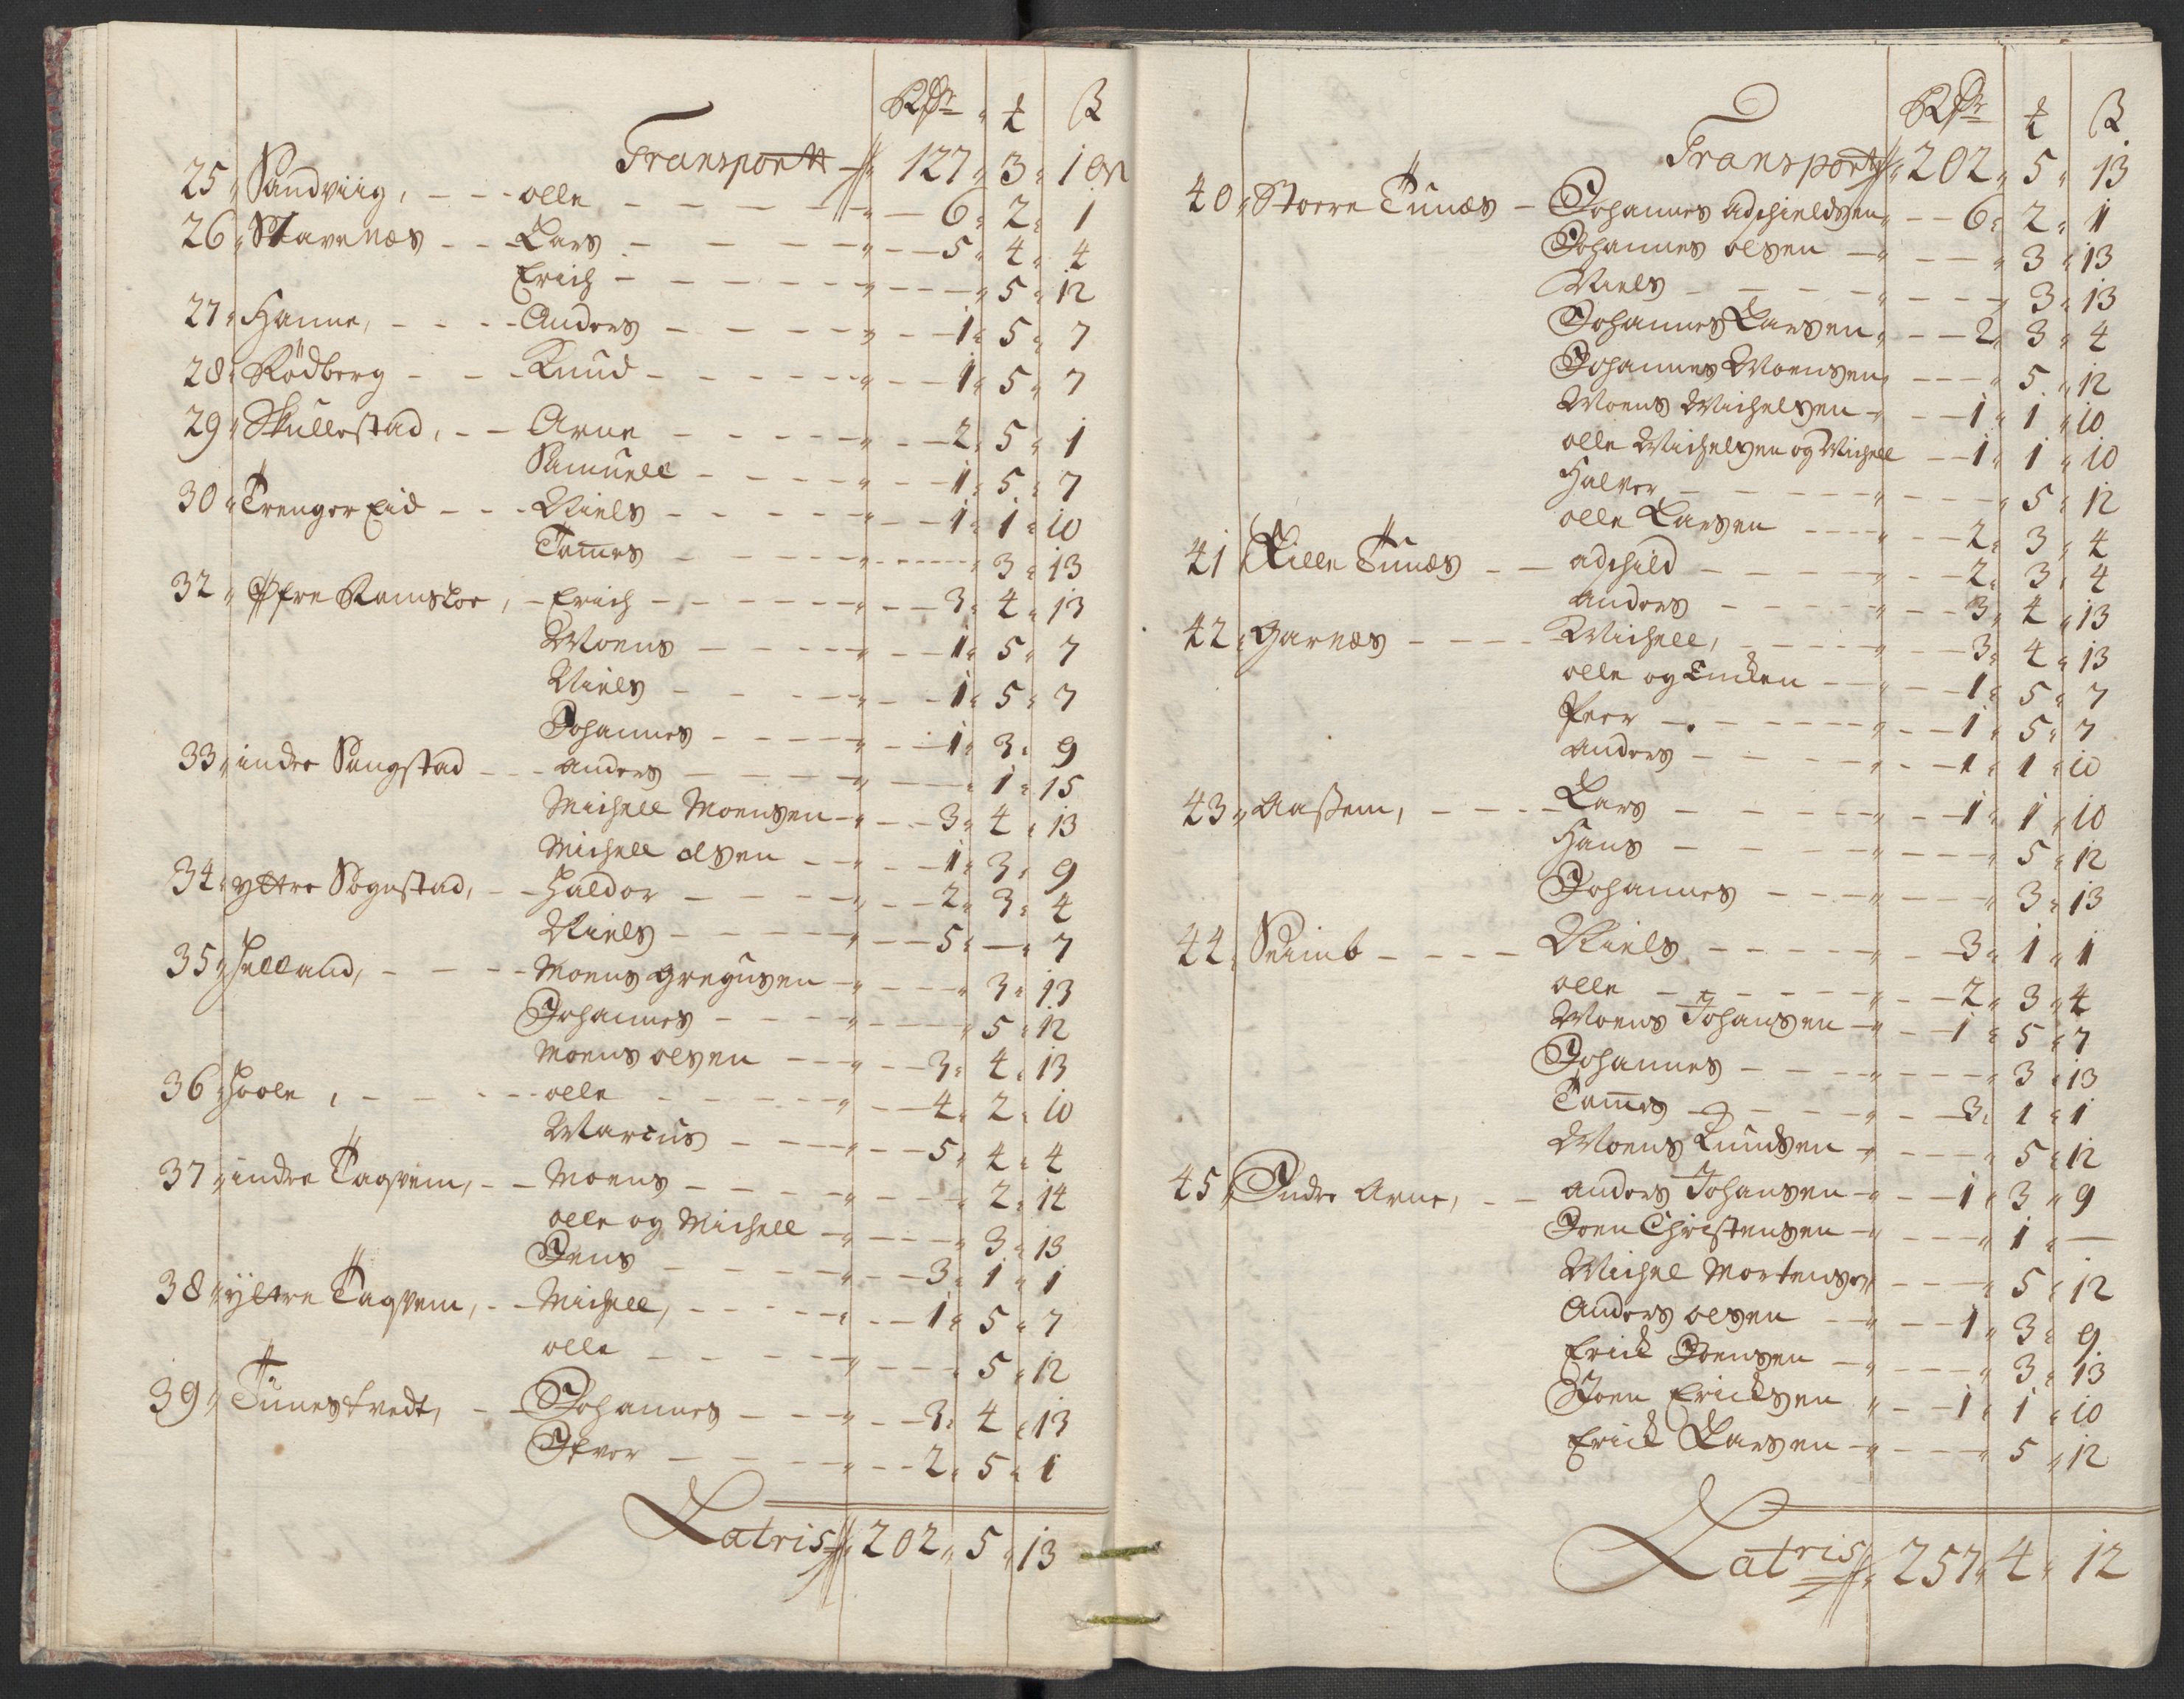 Rdr t ß
Transportt 127 3 1
25 Sandviig, olle 6 2 1
26 Stavenæs Lars 5 4 4
Erich 5 12
27 Hanne, Anders 1 5 7
28 Rödberg Knud 1 5 7
29 Skullestad, Arne 2 5 1
Samuell 1 5 7
30 Trenger Eid Niels 1 1 10
Tomes 3 13
32 Øfre Ramsloe, Erich 3 4 13
Moens 1 5 7
Niels 1 5 7
Johannes 1 3 9
33 indre Sangstad Anders 1 15
Michell Monsen 3 4 13
Michell olsen 1 3 9
34 yttre Sognstad, Haldor 2 3 4
Niels 5 — 7
35 Helland, Moens Gregusen 3 13
Johannes 5 12
Moens olsen 3 4 13
36 Hoole, olle 4 2 10
Marcus 5 4 4
37 indre Taqvem, Moens 2 14
olle og Michell 3 13
Jens 3 1 1
38 yttre Taqvem, Michell, 1 5 7
olle 5 12
39 Tunestvedt, Johannes 3 4 13
Ifvor 2 5 1
Latris 202 5 13
Rdr t ß
Transport 202 5 13
40 Stoere Tunæs Johannes Adshieldsen 6 2 1
Johannes olsen 3 13
Niels 3 13
Johannes Larsen 2 3 4
Johannes Moensen 5 12
Moens Michelsen 1 1 10
olle Michelsen og Michell 1 1 10
Halvor 5 12
olle Larsen 2 3 4
41 Lille Tunæs adshild 2 3 4
Anders 3 4 13
42 Garnæs Michell, 3 4 13
olle og Encken 1 5 7
Peer 1 5 7
Anders 1 1 10
43 Aassem, Lars 1 1 10
Hans 5 12
Johannes 3 13
44 Seimb Niels 3 1 1
olle 2 3 4
Moens Johansen 1 5 7
Johannes 3 13
Tomes 3 1 1
Moens Knudsen 5 12
45 Indre Arne, Anders Johansen 1 3 9
Joen Christensen 1 —
Michel Mortensen 5 12
Anders olsen 1 3 9
Erick Joensen 3 13
Joen Ericksen 1 1 10
Erick Larsen 5 12
Latris 257 4 12